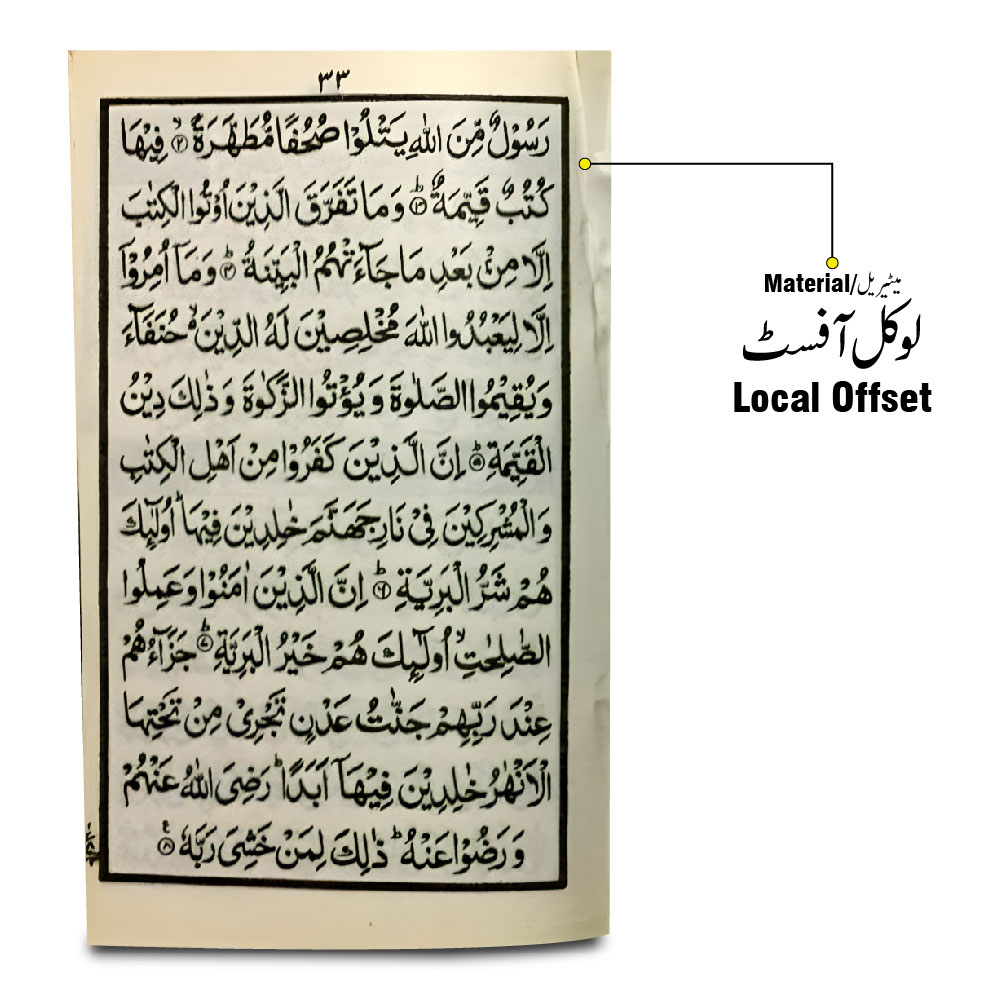 ٣٣
رَسُوْلٌ مِّنَ اللّٰهِ يَتْلُوْا صُحُفًا مُّطَهَّرَةً ۙ﴿٢﴾ فِيْهَا
كُتُبٌ قَيِّمَةٌ ؕ﴿٣﴾ وَمَا تَفَرَّقَ الَّذِيْنَ اُوْتُوا الْكِتٰبَ
اِلَّا مِنْۢ بَعْدِ مَا جَآءَتْهُمُ الْبَيِّنَةُ ؕ﴿٤﴾ وَمَآ اُمِرُوْٓا
اِلَّا لِيَعْبُدُوا اللّٰهَ مُخْلِصِيْنَ لَهُ الدِّيْنَ ۙ۬ حُنَفَآءَ
وَيُقِيْمُوا الصَّلٰوةَ وَيُؤْتُوا الزَّكٰوةَ وَذٰلِكَ دِيْنُ
الْقَيِّمَةِ ؕ﴿٥﴾ اِنَّ الَّذِيْنَ كَفَرُوْا مِنْ اَهْلِ الْكِتٰبِ
وَالْمُشْرِكِيْنَ فِيْ نَارِ جَهَنَّمَ خٰلِدِيْنَ فِيْهَا ؕ اُولٰٓئِكَ
هُمْ شَرُّ الْبَرِيَّةِ ؕ﴿٦﴾ اِنَّ الَّذِيْنَ اٰمَنُوْا وَعَمِلُوا
الصّٰلِحٰتِ ۙ اُولٰٓئِكَ هُمْ خَيْرُ الْبَرِيَّةِ ؕ﴿٧﴾ جَزَآؤُهُمْ
عِنْدَ رَبِّهِمْ جَنّٰتُ عَدْنٍ تَجْرِيْ مِنْ تَحْتِهَا
الْاَنْهٰرُ خٰلِدِيْنَ فِيْهَآ اَبَدًا ؕ رَضِيَ اللّٰهُ عَنْهُمْ
وَرَضُوْا عَنْهُ ؕ ذٰلِكَ لِمَنْ خَشِيَ رَبَّهٗ ﴿٨﴾ ع
Material/میٹیریل
لوکل آفسٹ
Local Offset